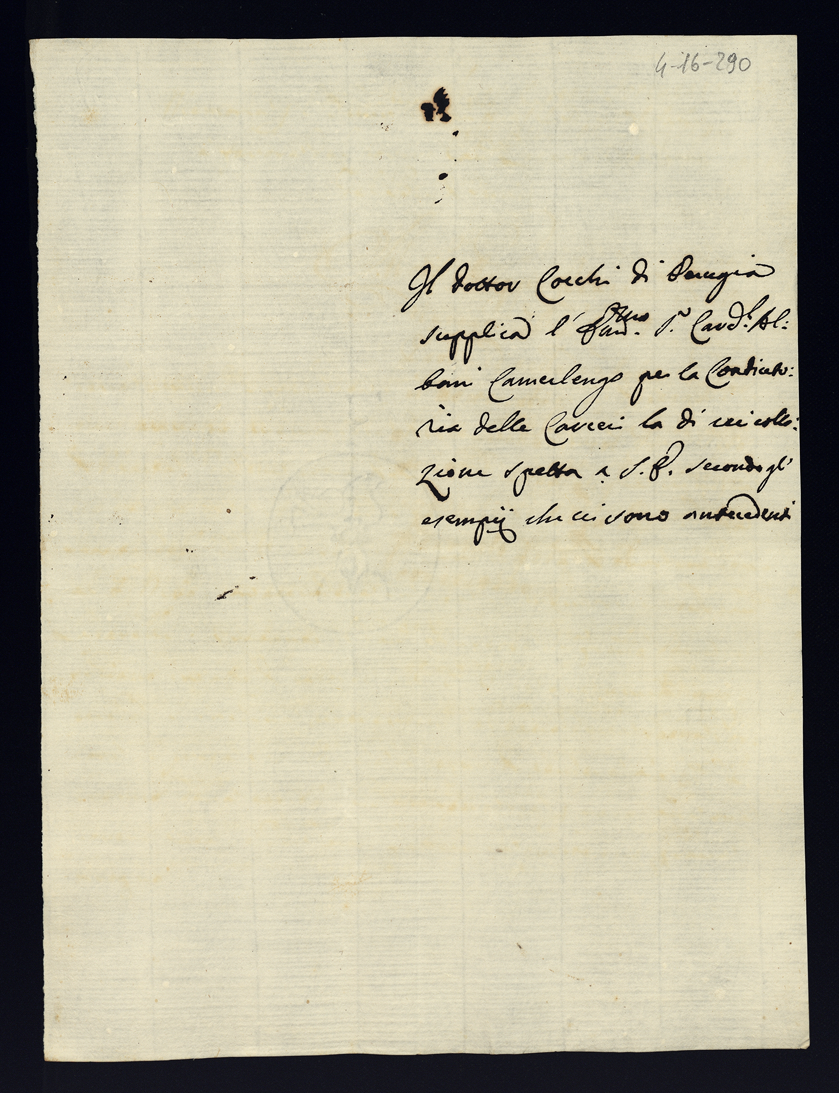 4-16-290
Il dottor Cocchi di Perugia
supplica l' Em.mo S.r Card.l Al:
bani Camerlengo per la Coadiuto:
ria delle Carceri la di cui colla:
zione spetta a S. E. secondo gl'
esempij che ci sono antecedenti